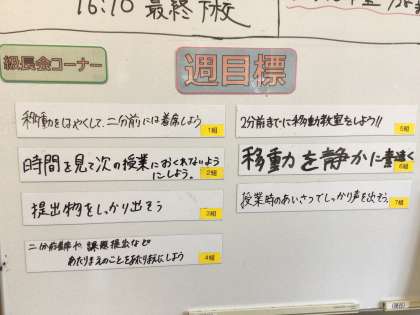 16:10 最終下校
級長会コーナー
週目標
移動をはやくして、二分前には着席しよう
1組
時間を見て次の授業におくれないよう
にしよう。
2組
提出物をしっかり出そう
3組
二分前着席や課題提出など
あたりまえのことをあたりまえにしよう
4組
2分前までに移動教室をしよう!!
5組
移動を静かに素速く
6組
授業時のあいさつでしっかり声を出そう。
7組